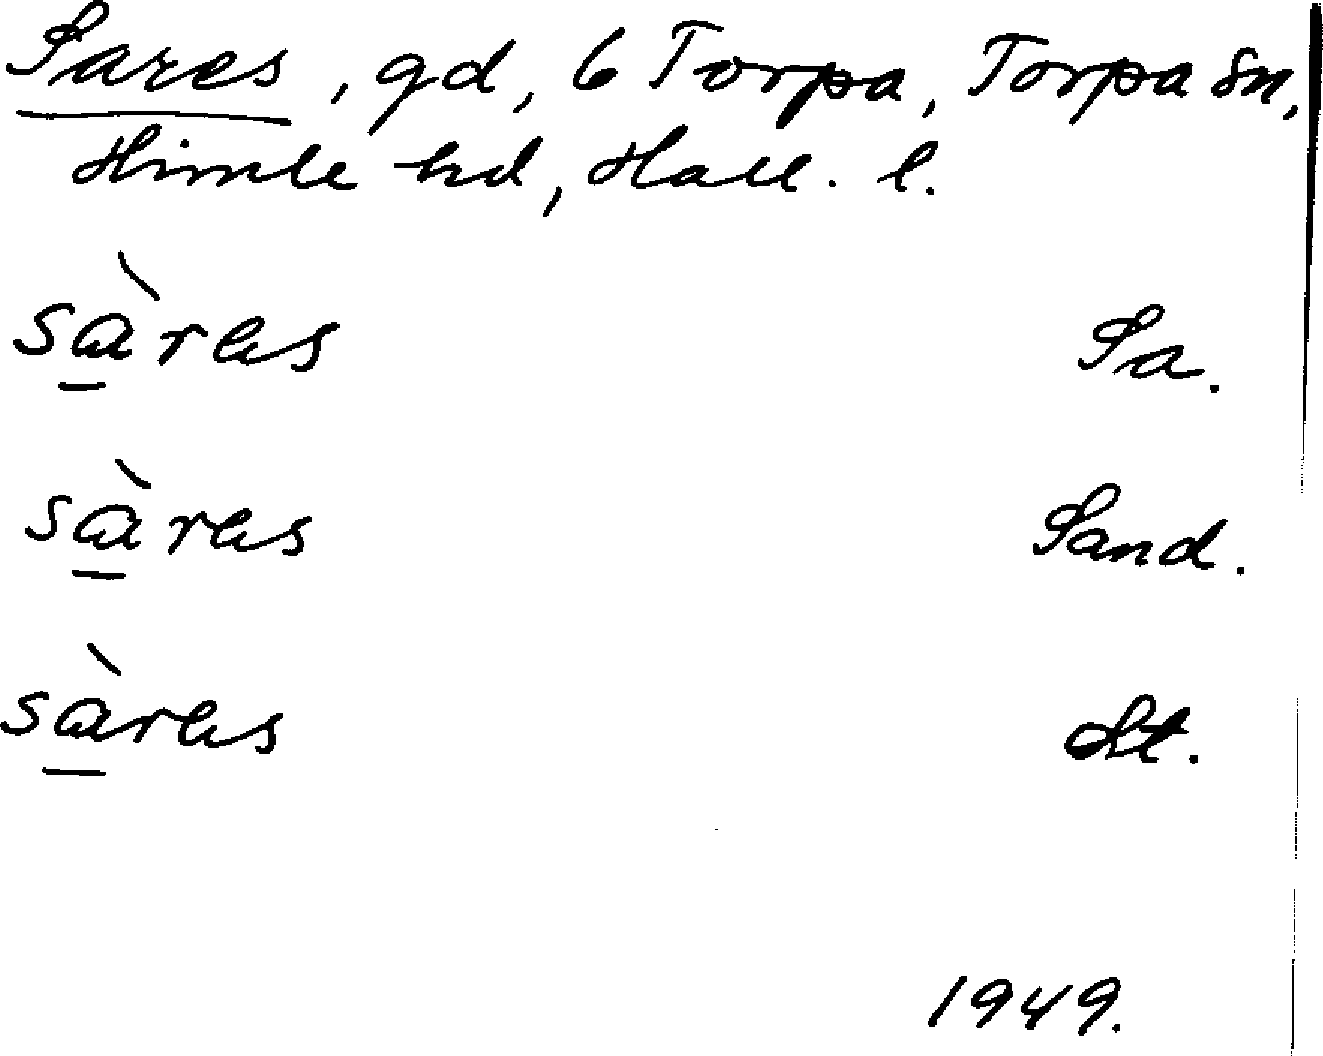 Sares, gd, 6 Torpa, Torpa sn,
Himle hd, Hall. l.
sàres Sa.
sàres Sand.
sàres Lt.
1949.